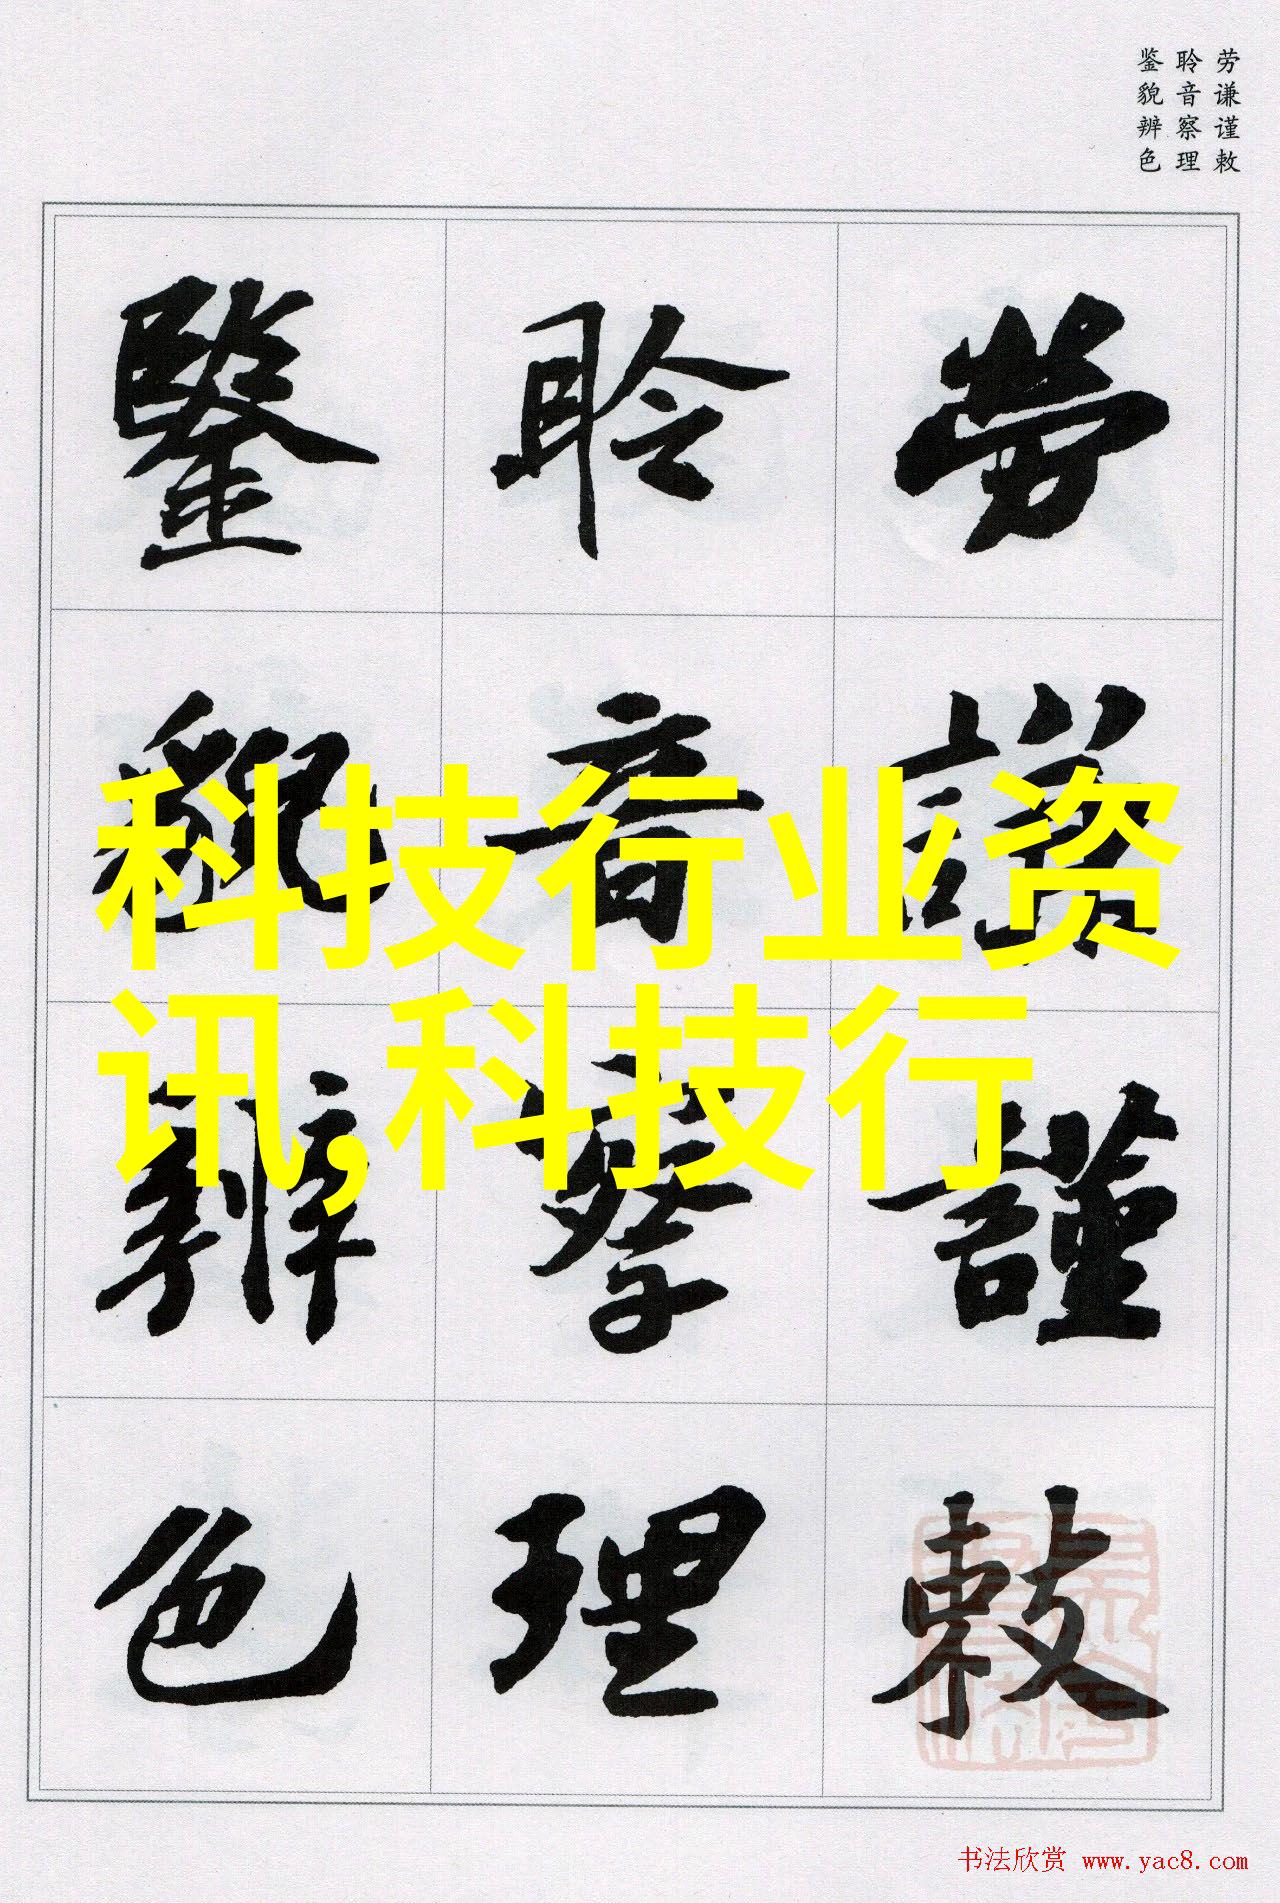 劳谦谨敕
聆音察理
鉴貌辨色
勞謙謹敕
聆音察理
鑒貌辨色
科技行业资
讯,科技行
书法欣赏 www.yac8.com